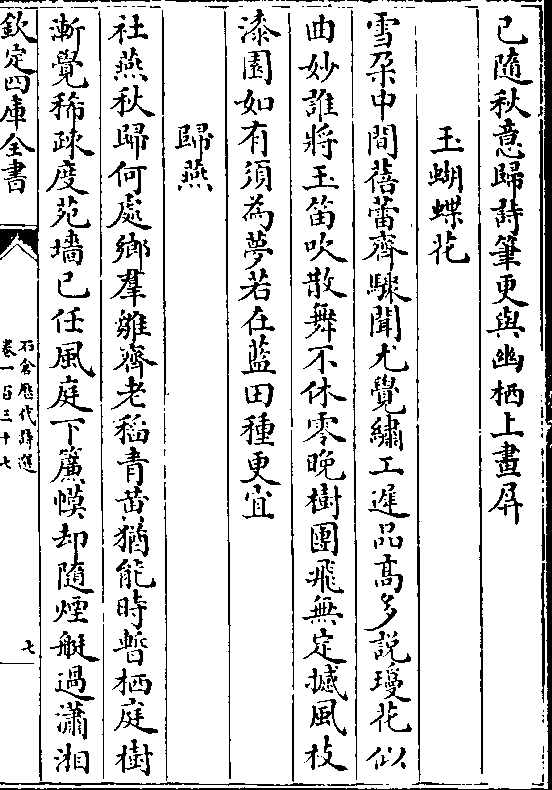 已隨秋意歸詩筆更與幽栖上畫屏
玉蝴蝶花
雪朶中間蓓蕾齊驟聞尤覺繡工遲品髙多説瓊花似
曲妙誰將玉笛吹散舞不休零晚樹團飛無定撼風枝
漆園如有須為夢若在藍田種更宜
歸燕
社燕秋歸何處鄉羣雛齊老稻青黄猶能時暫栖庭樹
漸覺稀疎度苑墻已任風庭下簾幙却隨煙艇過瀟湘
欽定四庫全書
石倉歴代詩選
卷一百三十七
七